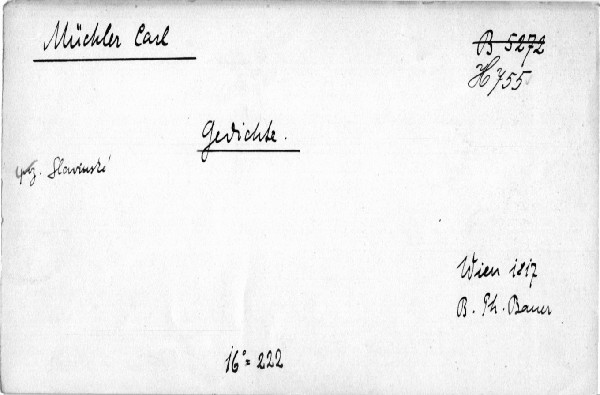 Müchler Carl
B 5272
H 755
Gedichte.
Slavinski
Wien 1817
B. Ph. Bauer
16° = 222